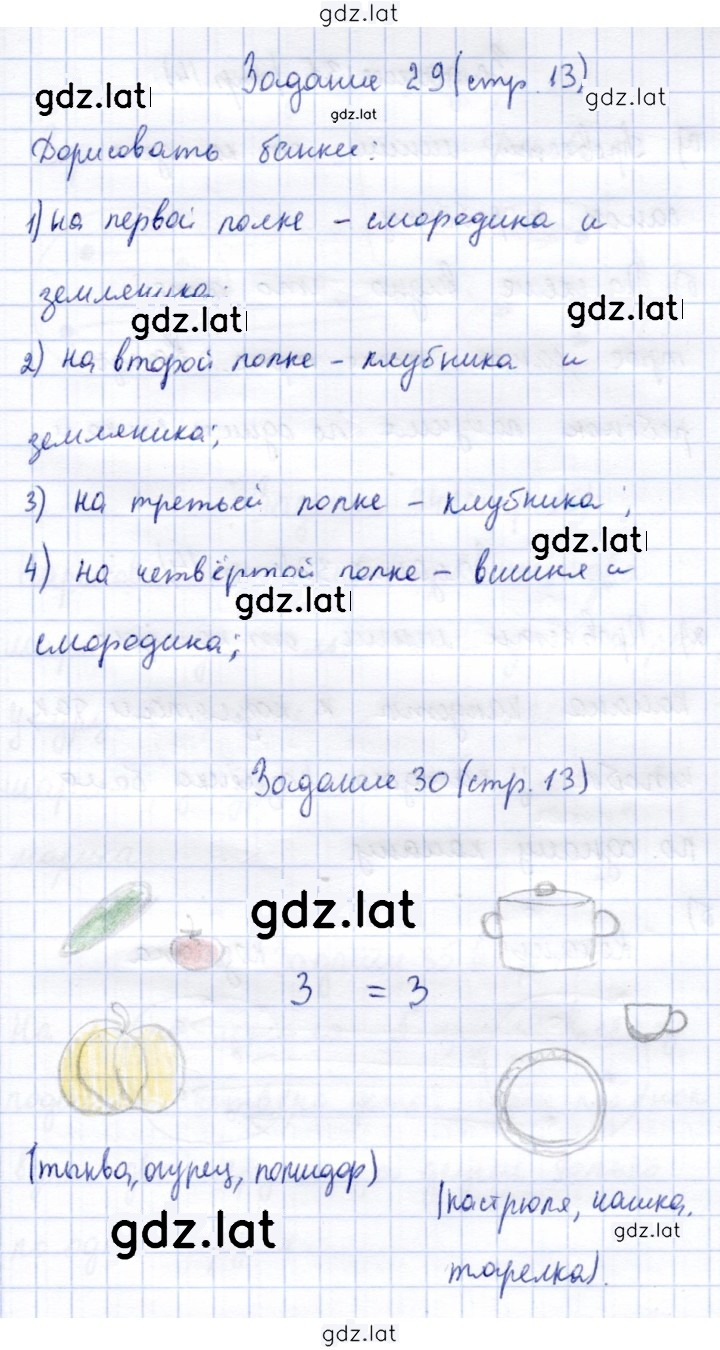 gdz.lat
Задание 29 (стр. 13)
gdz.lat
gdz.lat
gdz.lat
Дорисовать банки:
1) на первой полке – смородина и
земляника
gdz.lat
gdz.lat
2) на второй полке – клубника и
земляника;
3) на третьей полке – клубника;
gdz.lat
4) на четвёртой полке – вишня и
gdz.lat
смородина;
Задание 30 (стр. 13)
gdz.lat
3 = 3
(тыква, огурец, помидор)
(кастрюля, чашка,
gdz.lat
gdz.lat
тарелка).
gdz.lat